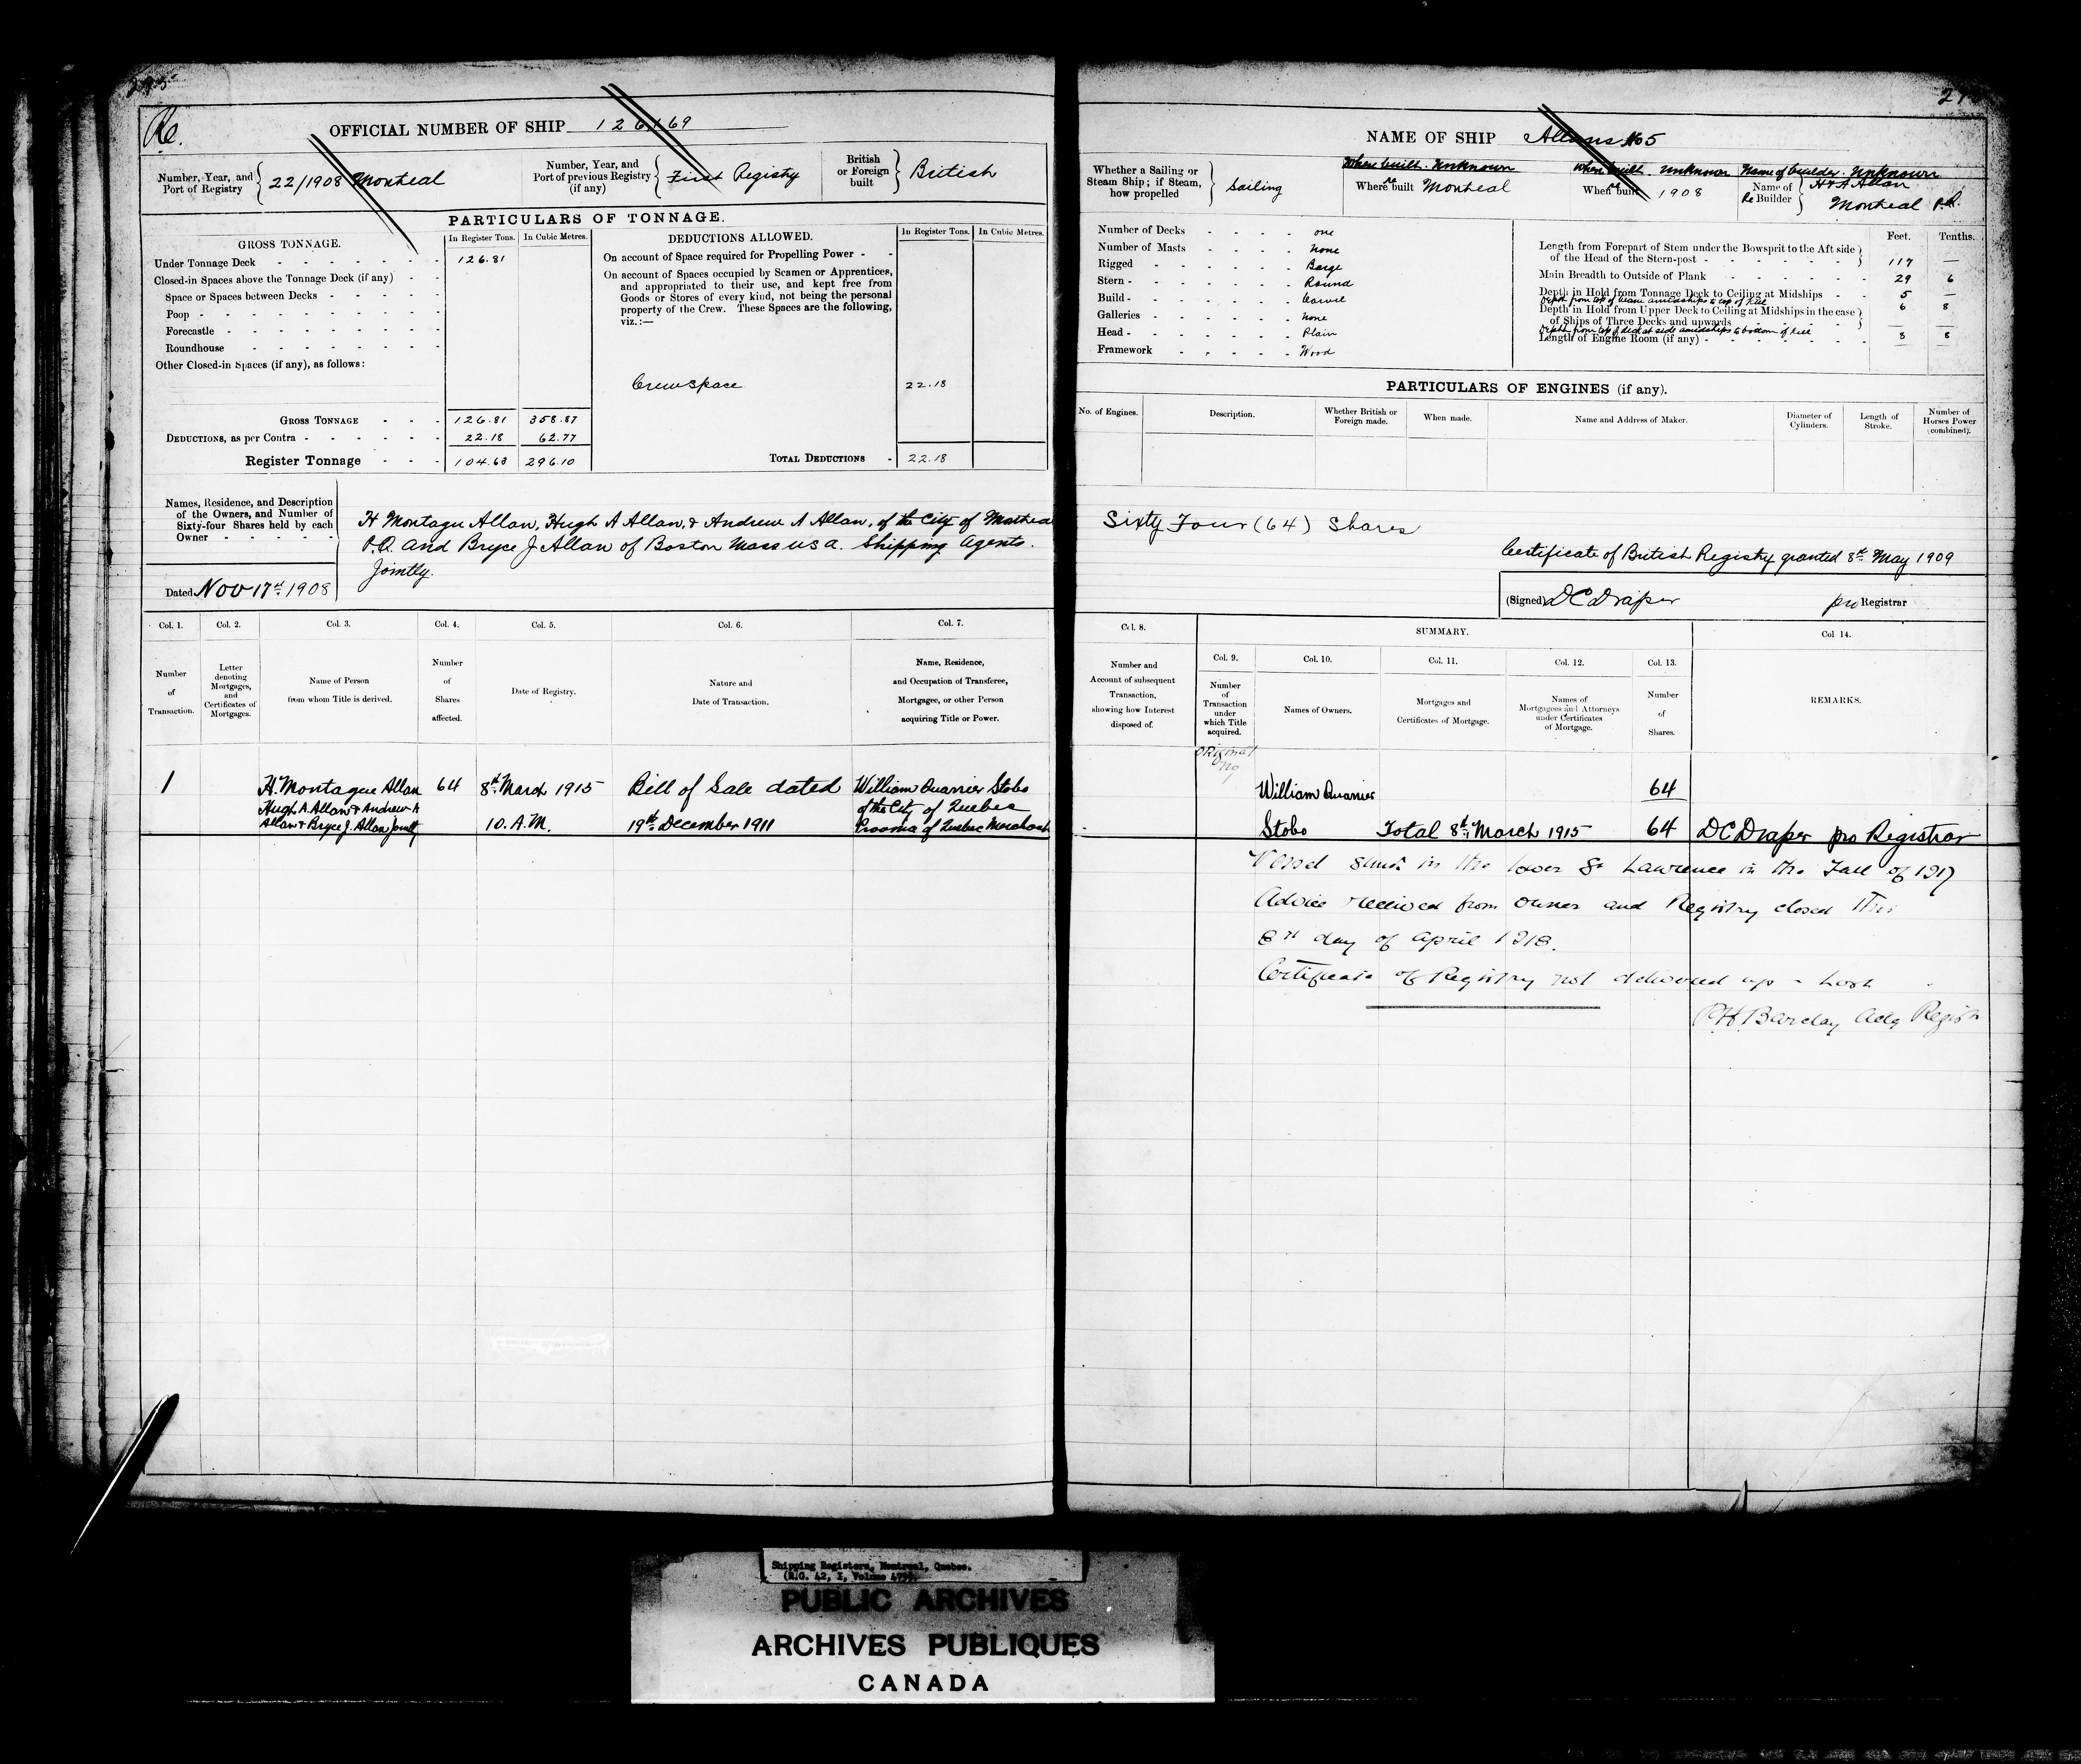 Re.
OFFICIAL NUMBER OF SHIP 126169
Number, Year, and
Port of Registry
22/1908 Montreal
Number, Year, and
Port of previous Registry
(if any)
First Registry
British
or Foreign
built
British
PARTICULARS OF TONNAGE.
GROSS TONNAGE.
In Register Tons.
In Cubic Metres.
Under Tonnage Deck 126.81
Closed-in Spaces above the Tonnage Deck (if any)
Space or Spaces between Decks
Poop
Forecastle
Roundhouse
Other Closed-in Spaces (if any), as follows:
GROSS TONNAGE 126.81 358.87
DEDUCTIONS, as per Contra 22.18 62.77
Register Tonnage 104.63 296.10
DEDUCTIONS ALLOWED.
In Register Tons.
In Cubic Metres.
On account of Space required for Propelling Power
On account of Spaces occupied by Seamen or Apprentices,
and appropriated to their use, and kept free from
Goods or Stores of every kind, not being the personal
property of the Crew. These Spaces are the following,
viz.:—
Crewspace 22.18
TOTAL DEDUCTIONS 22.18
Names, Residence, and Description
of the Owners, and Number of
Sixty-four Shares held by each
Owner
H Montagu Allan, Hugh A Allan, & Andrew A Allan, of the City of Montreal
P.Q. and Bryce J Allan of Boston Mass USA. Shipping Agents.
Jointly.
Dated Nov 17th 1908
Col. 1.
Col. 2.
Col. 3.
Col. 4.
Col. 5.
Col. 6.
Col. 7.
Number
of
Transaction.
Letter
denoting
Mortgages,
and
Certificates of
Mortgages.
Name of Person
from whom Title is derived.
Number
of
Shares
affected.
Date of Registry.
Nature and
Date of Transaction.
Name, Residence,
and Occupation of Transferee,
Mortgagee, or other Person
acquiring Title or Power.
1 H. Montague Allan 64 8th March 1915 Bill of Sale dated William Quarrier Stobo
Hugh A. Allan & Andrew A of the City of Quebec
Allan & Bryce J. Allan Jointly 10. A.M. 19th December 1911 Province of Quebec Merchant
NAME OF SHIP Allans No 5
Whether a Sailing or
Steam Ship; if Steam,
how propelled
Sailing
Where built. Unknown
Where built Montreal
When built. Unknown
When built 1908
Name of builder. Unknown
Name of
Re Builder
H & A Allan
Montreal P.Q.
Number of Decks one
Number of Masts None
Rigged Barge
Stern Round
Build Carvel
Galleries None
Head Plain
Framework Wood
Feet. Tenths.
Length from Forepart of Stem under the Bowsprit to the Aft side
of the Head of the Stern-post 117 —
Main Breadth to Outside of Plank 29 6
Depth in Hold from Tonnage Deck to Ceiling at Midships 5 —
Depth from top of beam amidships to top of Keel 6 8
Depth in Hold from Upper Deck to Ceiling at Midships in the case
of Ships of Three Decks and upwards
Depth from top of deck at side amidships to bottom of keel 8 8
Length of Engine Room (if any)
PARTICULARS OF ENGINES (if any).
No. of Engines.
Description.
Whether British or
Foreign made.
When made.
Name and Address of Maker.
Diameter of
Cylinders.
Length of
Stroke.
Number of
Horses Power
(combined).
Sixty Four (64) Shares
Certificate of British Registry granted 8th May 1909
(Signed) DC Draper pro Registrar
Col. 8.
SUMMARY.
Col 14.
Col. 9.
Col. 10.
Col. 11.
Col. 12.
Col. 13.
Number and
Account of subsequent
Transaction,
showing how Interest
disposed of.
Number
of
Transaction
under
which Title
acquired.
Names of Owners.
Mortgages and
Certificates of Mortgage.
Names of
Mortgagees and Attorneys
under Certificates
of Mortgage.
Number
of
Shares.
REMARKS.
Original
William Quarrier 64
Stobo Total 8th March 1915 64 DC Draper pro Registrar
Vessel sunk in the lower St Lawrence in the Fall of 1917
Advice received from owner and Registry closed this
8th day of April 1918.
Certificate of Registry not delivered up - Lost
Shipping Registers, Montreal, Quebec.
PUBLIC ARCHIVES
ARCHIVES PUBLIQUES
CANADA